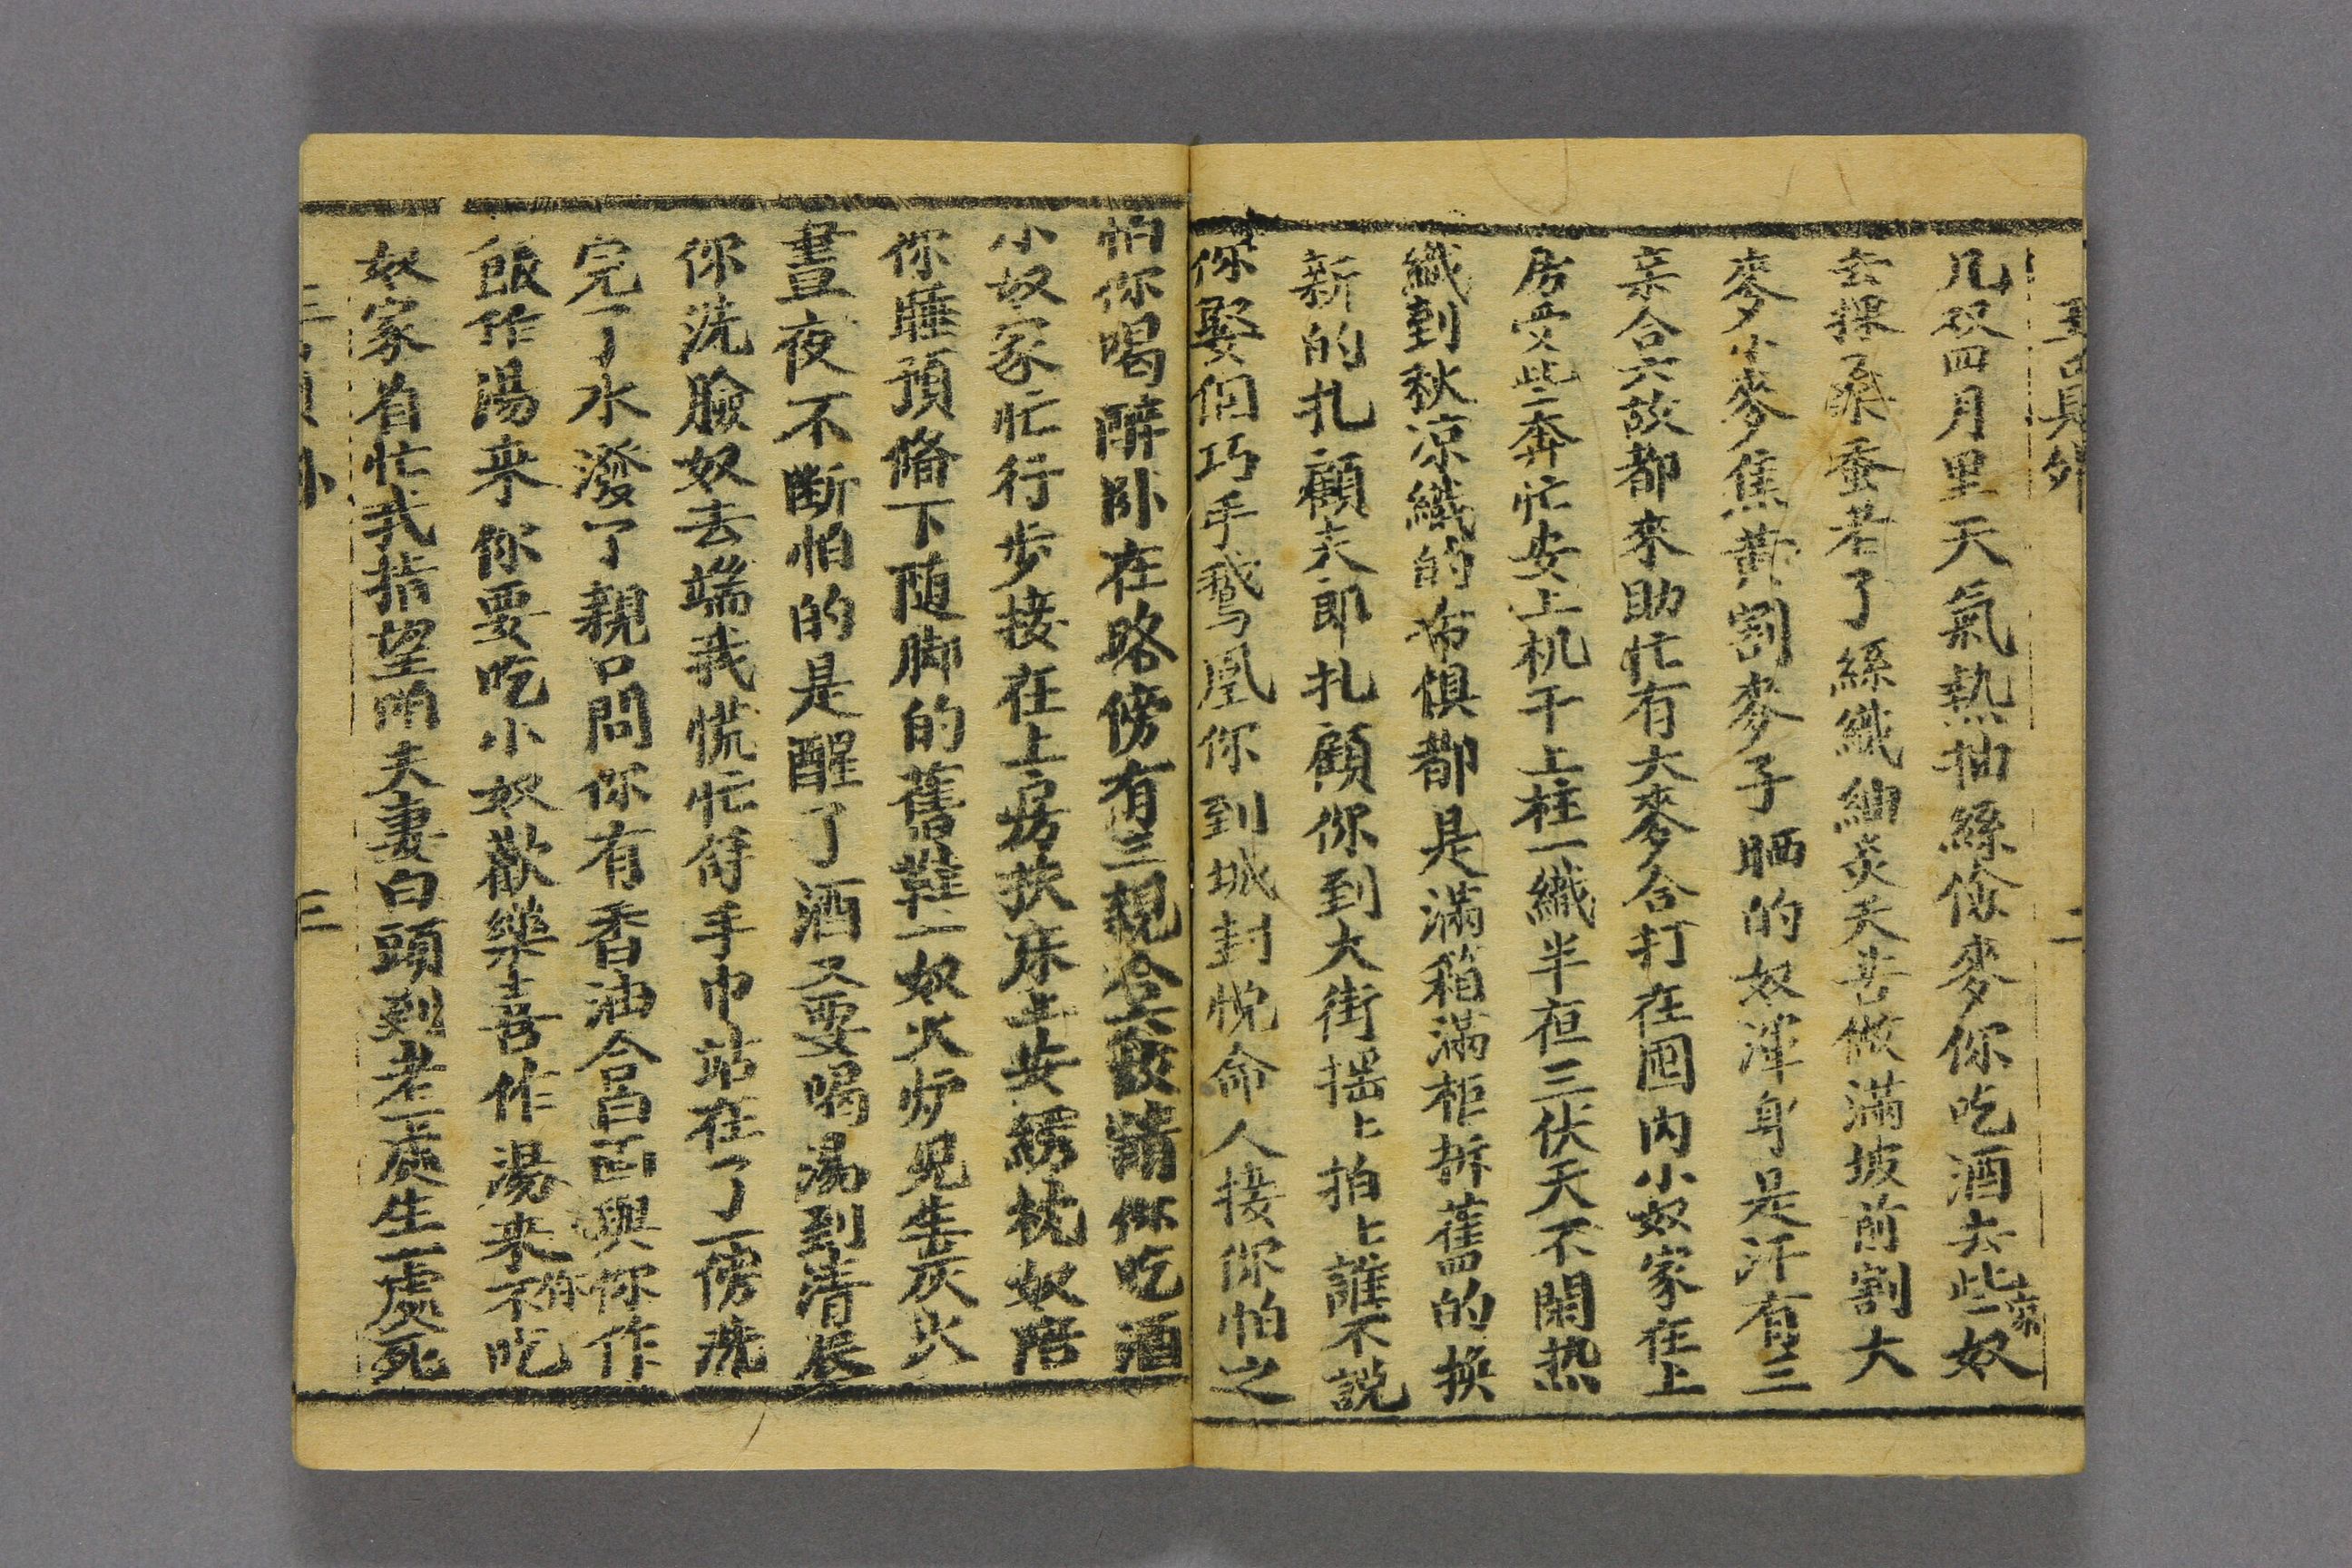 几双四月里天氣热抽絲儉麥你吃酒去些奴家
去採桑蚕老了絲織紬炎天苦做滿坡前割大
麥小麥焦黄割麥子晒的奴渾身是汗有三
亲合六故都來助忙有大麥合打在囤内小奴家在上
房受些奔忙安上机干上柱一織半夜三伏天不閑热
織到秋凉織的布俱都是滿箱滿柜拆舊的换
新的扎顧丈郎扎顧你到大街摇上拍上誰不説
你娶個巧手鵝凰你到城封悅命人接你怕之
怕你喝醉卧在路傍有三親合六故請你吃酒
小奴家忙行步接在上房扶床上安綉枕奴陪
你睡預俻下随脚的舊鞋一奴火炉兒生灰火
晝夜不断怕的是醒了酒又要喝湯到清晨
你洗臉奴去端我慌忙符手巾站在了一傍洗
完了水潑了親口問你有香油合昌面與你作
飯作湯来你要吃小奴歡樂喜作湯来你不吃
奴家着忙我指望咱夫妻白頭到老一處生一處死
三